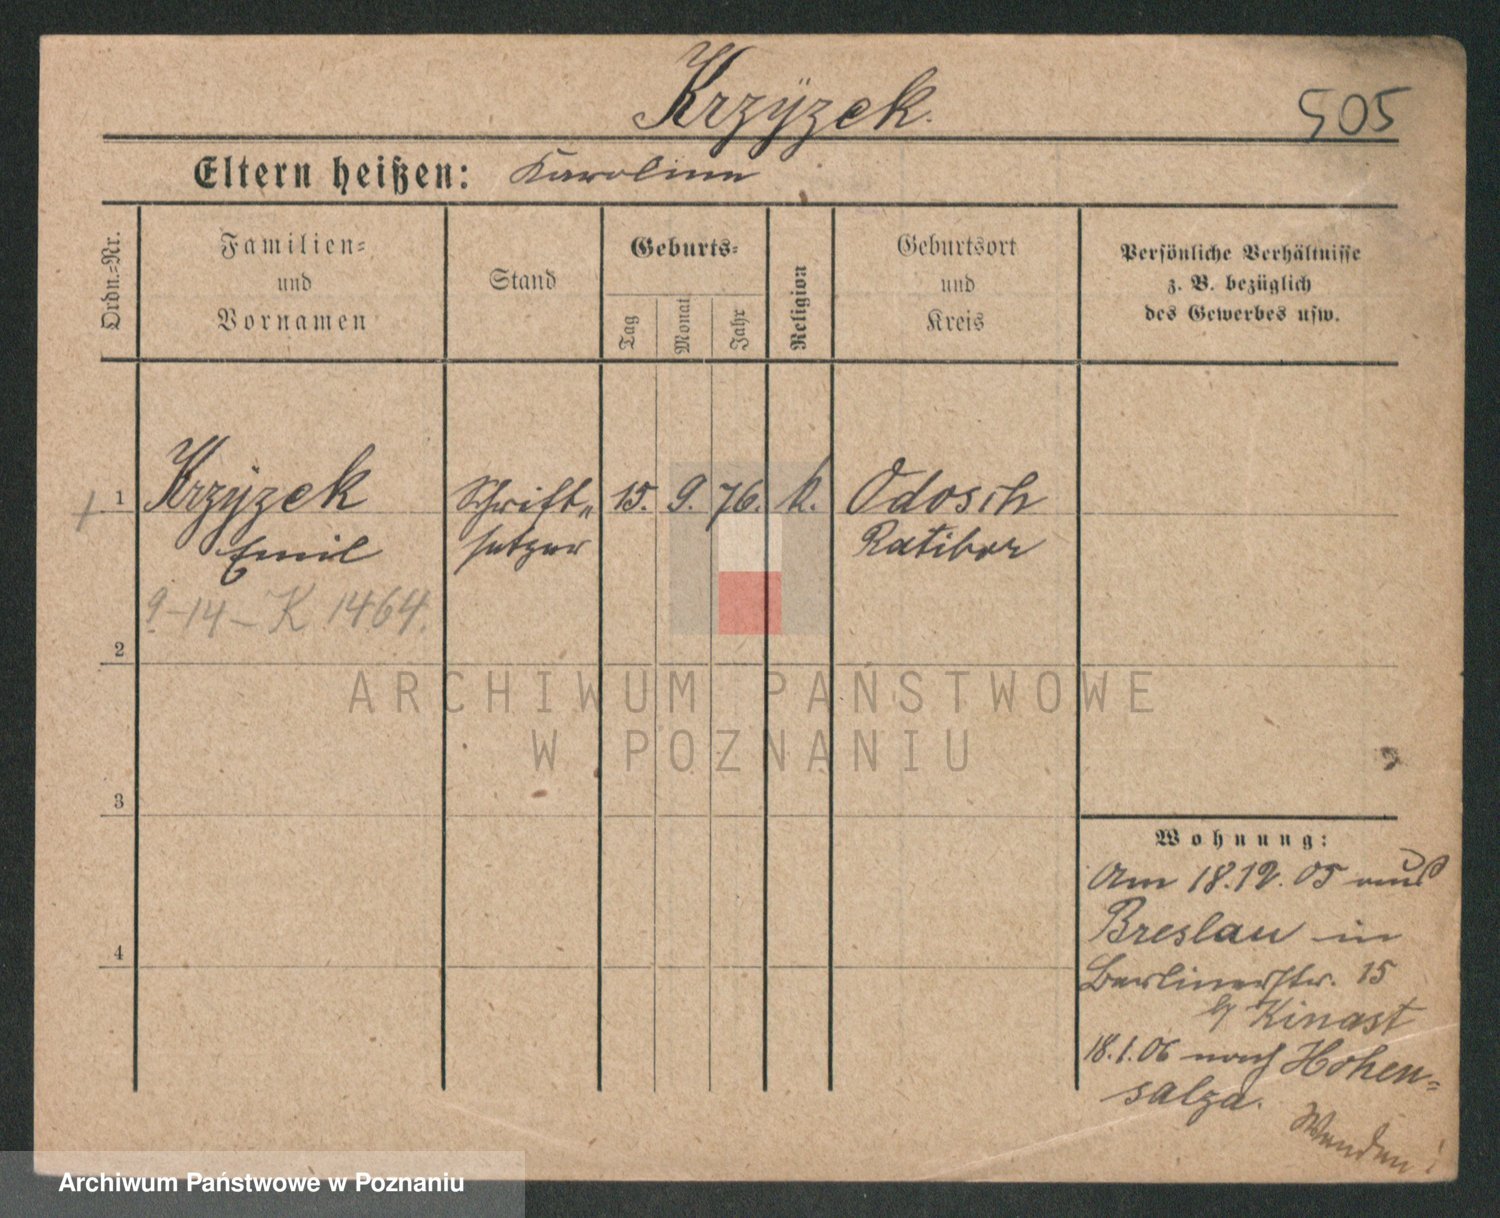 Krzÿzek.
505
Eltern heißen: Karoline
Ordn.=Nr.
Familien=
und
Vornamen
Stand
Geburts=
Tag
Monat
Jahr
Religion
Geburtsort
und
Kreis
Persönliche Verhältnisse
z. B. bezüglich
des Gewerbes usw.
1 Krzÿzek Schrift„ 15. 9. 76. k. Odosch
Emil setzer Ratibor
9-14-K 1464.
2
ARCHIWUM PAŃSTWOWE
W POZNANIU
3
Wohnung:
Am 18.12.05 aus
Breslau in
4
Berlinerstr. 15
b/ Kinast
18.1.06 nach Hohen=
salza.
Wenden!
Archiwum Państwowe w Poznaniu